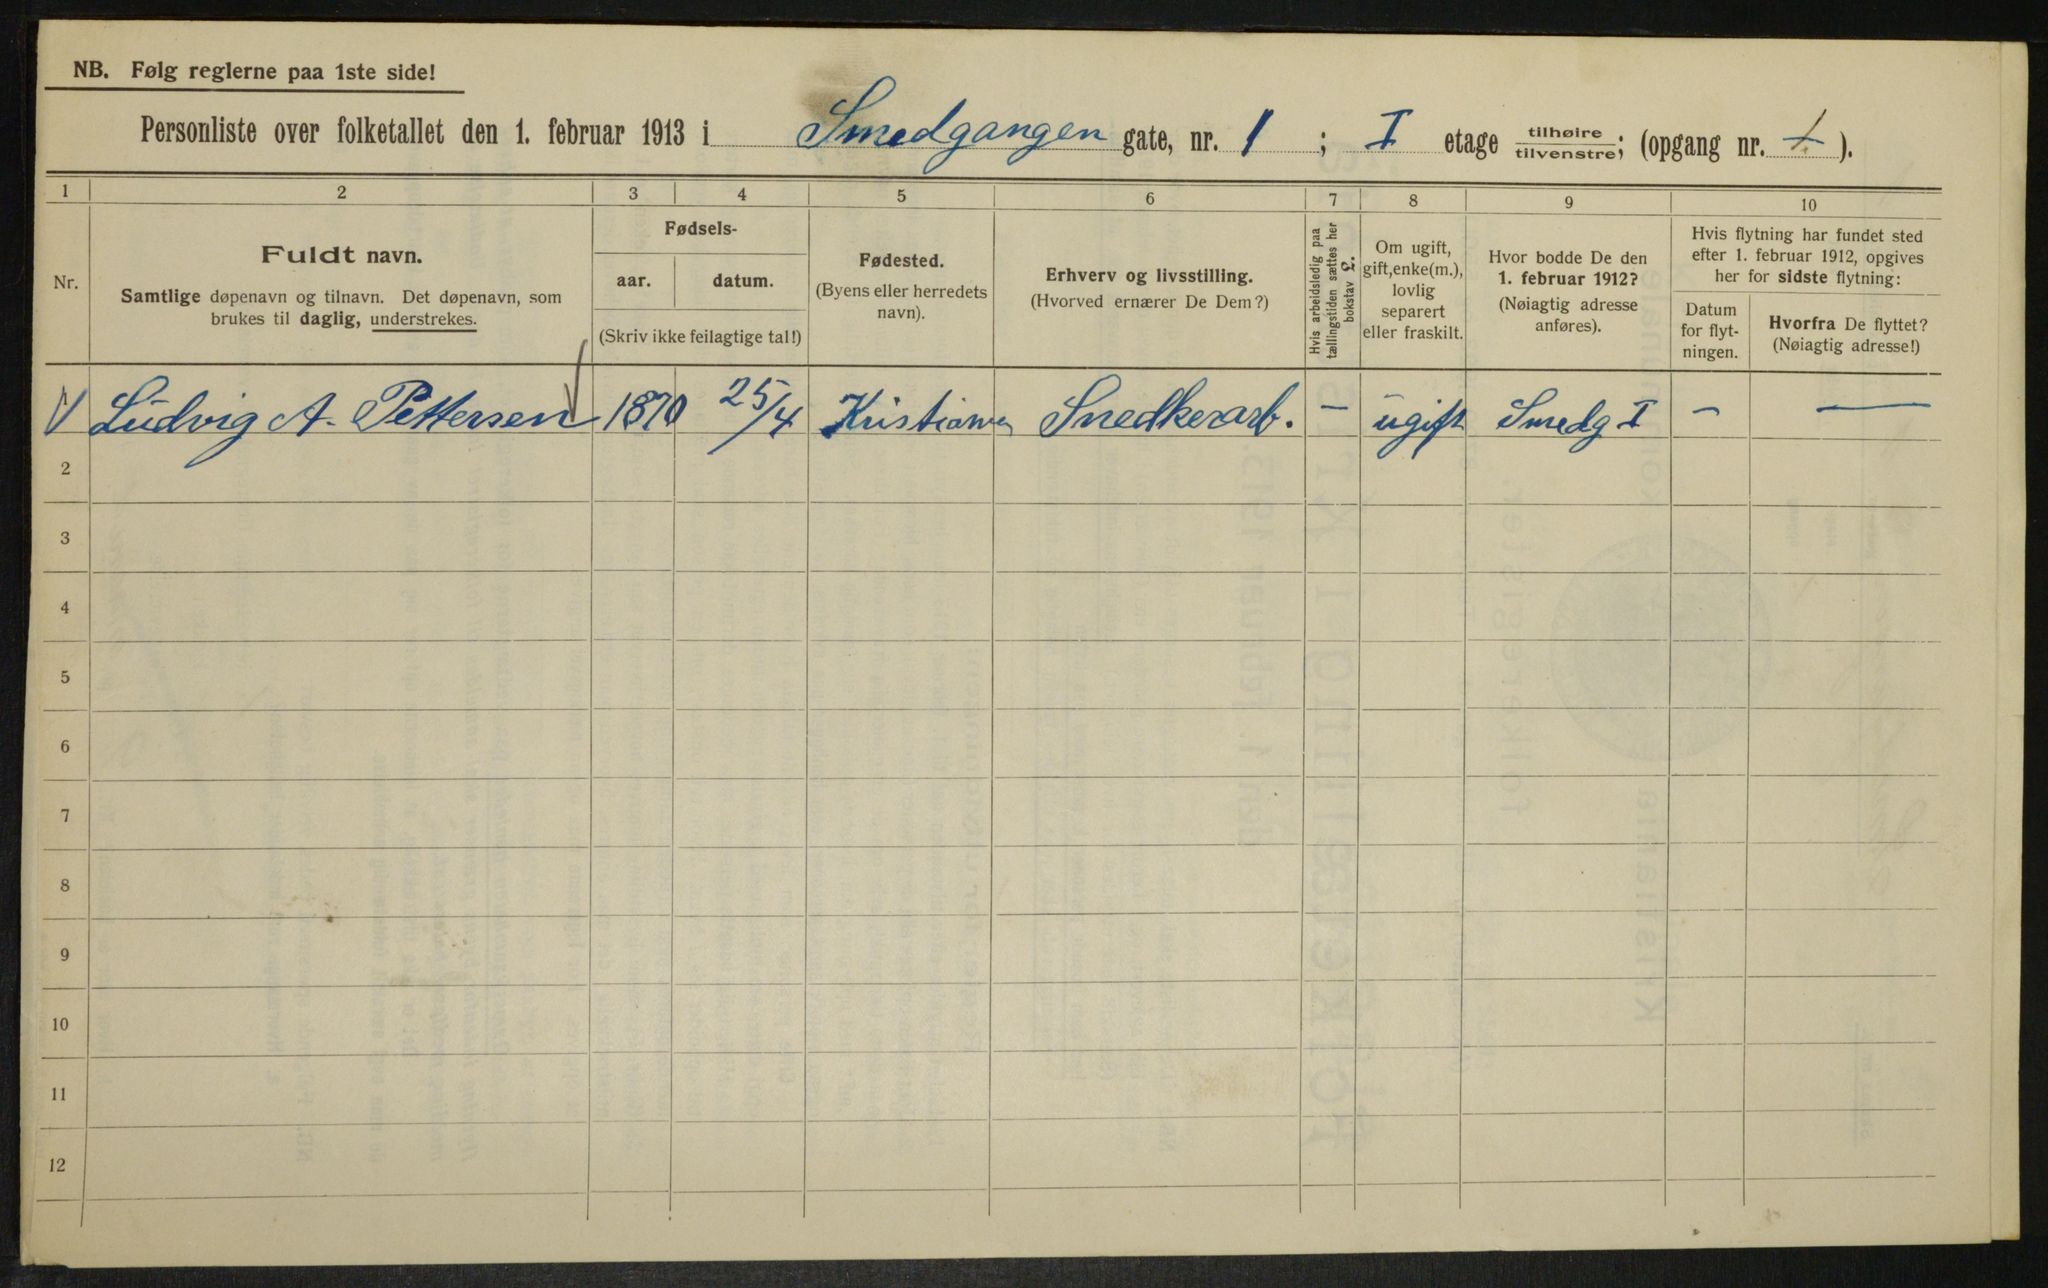 NB. Følg reglerne paa 1ste side!
Personliste over folketallet den 1. februar 1913 i Smedgangen gate, nr. 1 ; I etage tilhøire tilvenstre; (opgang nr. 1. ).
1 2 3 4 5 6 7 8 9 10
Nr.
Fuldt navn.
Samtlige døpenavn og tilnavn. Det døpenavn, som
brukes til daglig, understrekes.
Fødsels-
aar. datum.
(Skriv ikke feilagtige tal!)
Fødested.
(Byens eller herredets
navn).
Erhverv og livsstilling.
(Hvorved ernærer De Dem?)
Hvis arbeidsledig paa
tællingstiden sættes her
bokstav L.
Om ugift,
gift, enke(m.),
lovlig
separert
eller fraskilt.
Hvor bodde De den
1. februar 1912?
(Nøiagtig adresse
anføres).
Hvis flytning har fundet sted
efter 1. februar 1912, opgives
her for sidste flytning:
Datum
for flyt-
ningen.
Hvorfra De flyttet?
(Nøiagtig adresse!)
Ludvig A. Pettersen 1870 25/4 Kristiania Snedkerarb. – ugift Smedg I – –
2
3
4
5
6
7
8
9
10
11
12